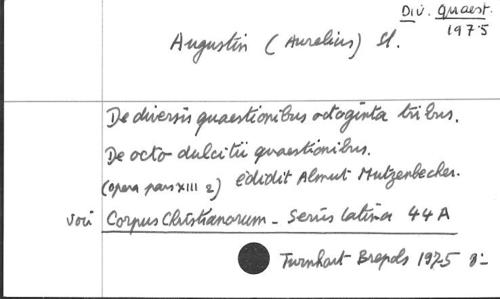 Div. Quaest.
1975
Augustin (Aurelius) St.
De diversis quaestionibus octoginta tribus.
De octo dulcitii quaestionibus.
(opera pars XIII 2) edidit Almut Mutzenbecher.
voir Corpus Christianorum - Series latina 44A
Turnhout Brepols 1975 8°